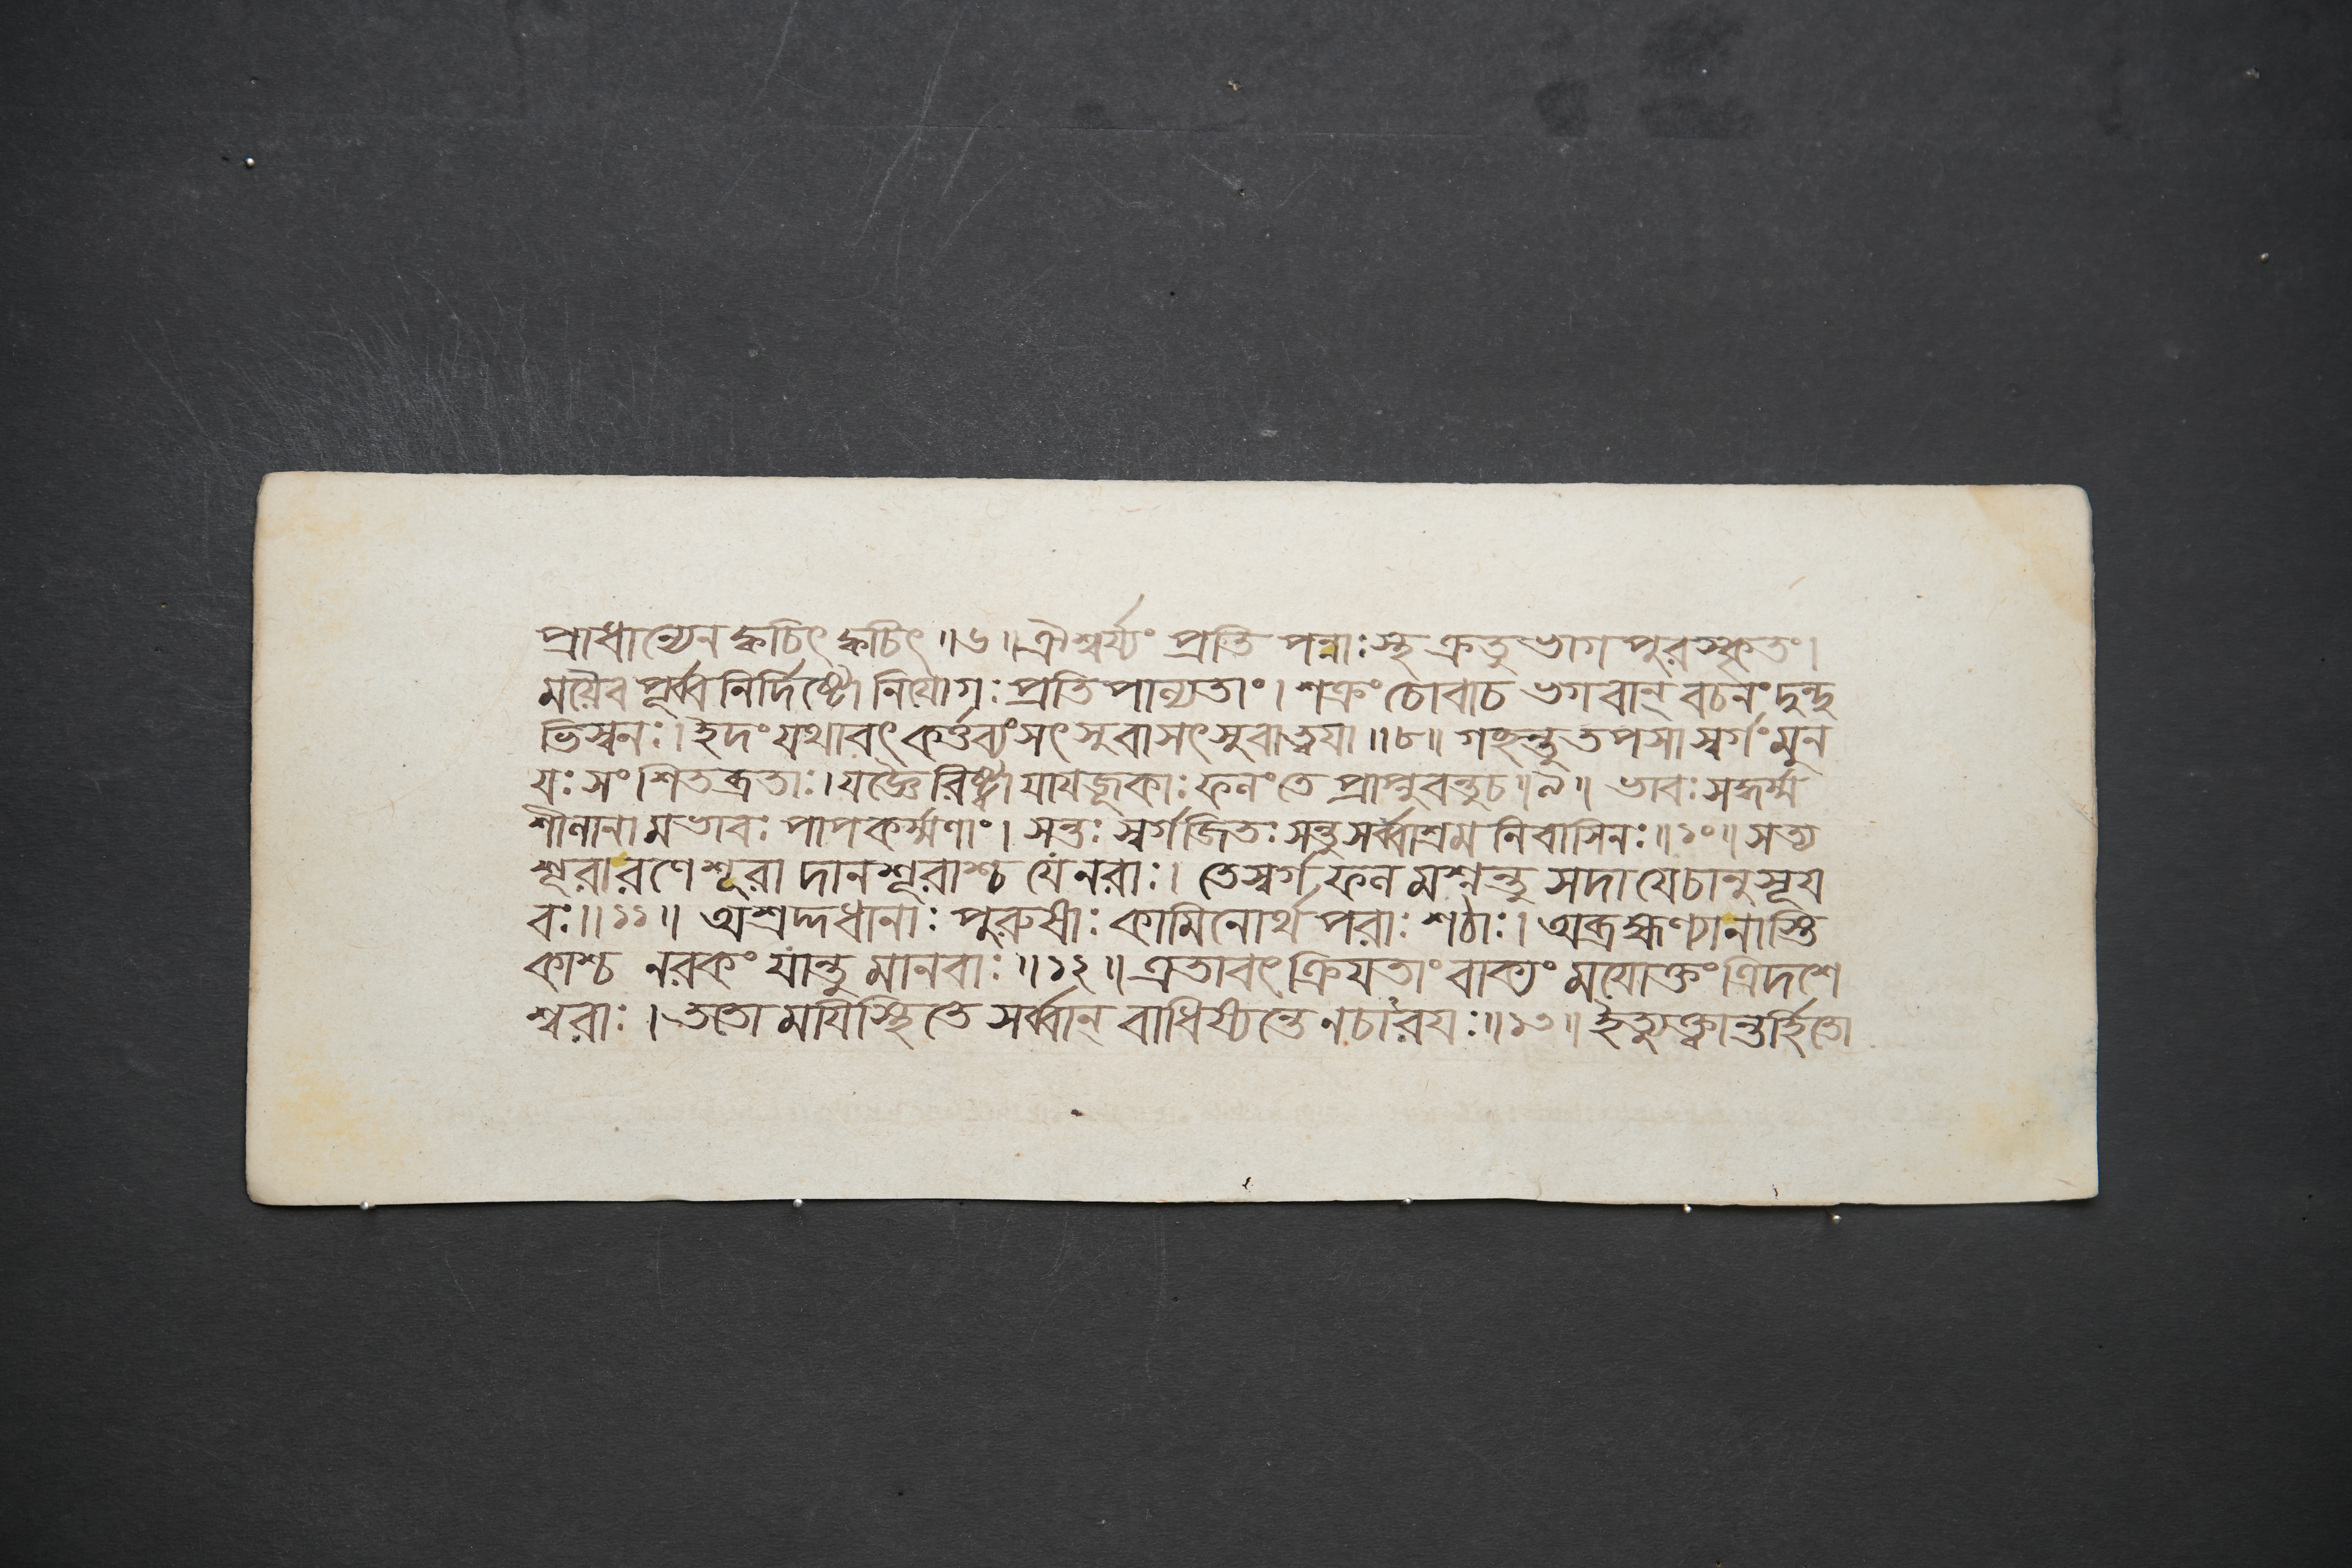 প্রাধান্যেন ক্বচিৎ ক্বচিৎ ॥৬॥ ঐশ্বর্য্যং প্রতি পন্নাঃ স্থ ক্রতু ভাগ পুরস্কৃতং।
ময়ৈব পূর্ব্ব নির্দিষ্টো নিয়োগঃ প্রতি পাল্যতাং। শক্রং চোবাচ ভগবান্ বচনং দুন্দু
ভিস্বনঃ। ইদং যথাবৎ কর্ত্তব্যং সৎসুবাসৎসুবাত্বয়া ॥৮॥ গচ্ছন্তু তপসা স্বর্গং মুন
যঃ সংশিতব্রতাঃ। যজ্ঞৈরিষ্ট্বা যাযজূকাঃ ফলং তে প্রাপ্নুবন্তুচ ॥৯॥ ভাবঃ সদ্ধর্ম্ম
শীলানা মভাবঃ পাপকর্ম্মণাং। সন্তঃ স্বর্গজিতঃ সন্তু সর্ব্বাশ্রম নিবাসিনঃ ॥১০॥ সত্য
শূরারণে শূরা দানশূরাশ্চ যে নরাঃ। তে স্বর্গ ফল মশ্নন্তু সদা যেচানুসূয
বঃ ॥১১॥ অশ্রদ্দধানাঃ পুরুষাঃ কামিনোর্থ পরাঃ শঠাঃ। অব্রহ্মণ্যা নাস্তি
কাশ্চ নরকং যান্তু মানবাঃ ॥১২॥ এতাবৎ ক্রিযতাং বাক্যং মযোক্তং ত্রিদশে
শ্বরাঃ। ততো মযিস্থিতে সর্ব্বান্ বাধিষ্যন্তে নচারযঃ ॥১৩॥ ইত্যুক্ত্বান্তর্হিতো